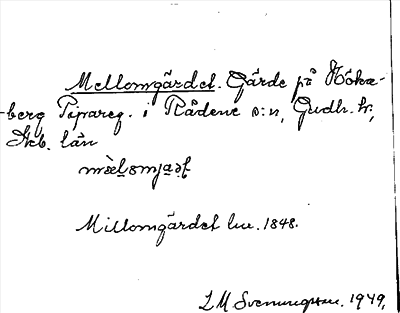 Mellomgärdet. Gärde på Höka-
berg Pipareg. i Rådene s:n, Gudh. hr,
Skb. län
Millomgärdet lm. 1848.
L M Svenungsson. 1949.